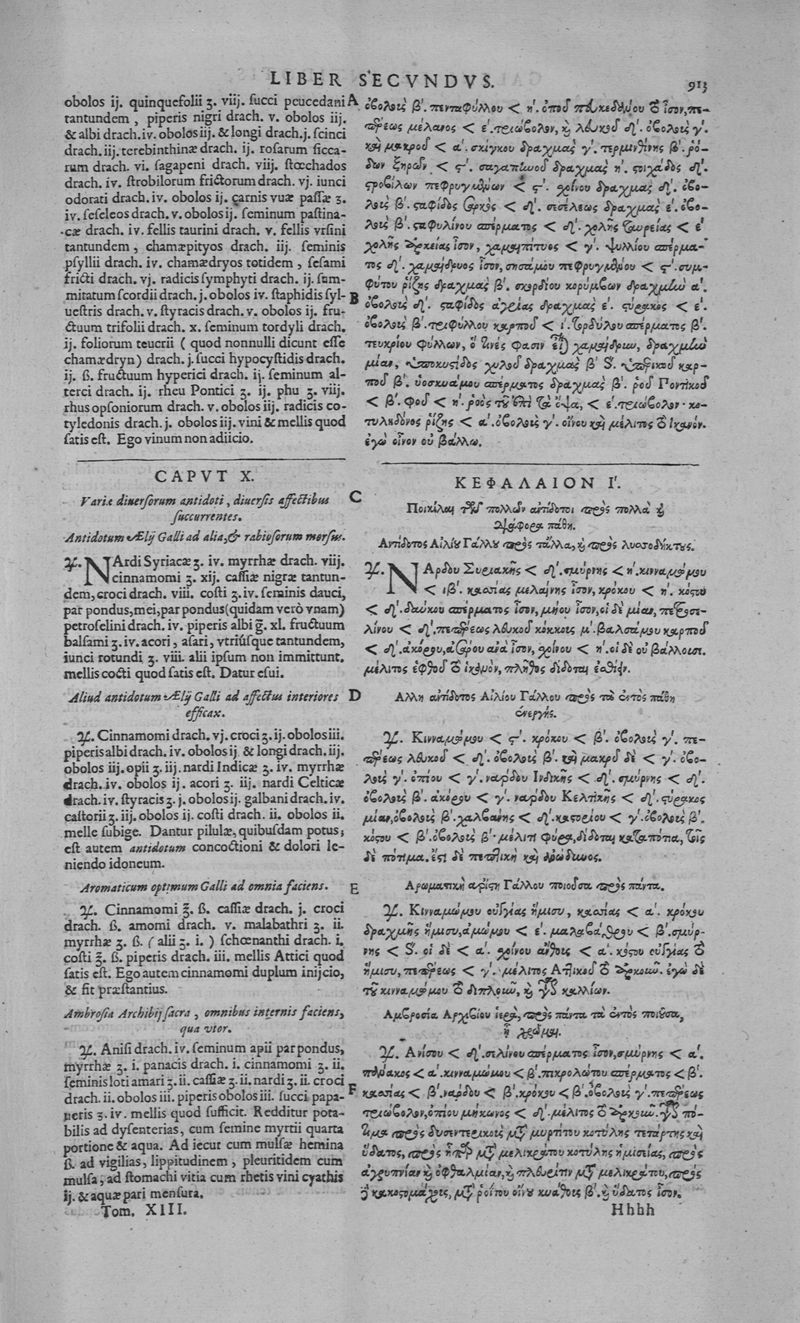 LIBER SECVNDVS. 913
obolos ij. quinquefolii ʒ. viij. ſucci peucedani A
tantundem, piperis nigri drach. v. obolos iij.
& albi drach. iv. obolos iij. & longi drach. j. ſcinci
drach. iij. terebinthinæ drach. ij. roſarum ſicca-
rum drach. vi. ſagapeni drach. viij. ſtœchados
drach. iv. ſtrobilorum frictorum drach. vj. iunci
odorati drach. iv. obolos ij. carnis vuæ paſſæ ʒ.
iv. ſeſeleos drach. v. obolos ij. ſeminum paſtina-
cæ drach. iv. fellis taurini drach. v. fellis vrſini
tantundem, chamæpityos drach. iij. ſeminis
pſyllii drach. iv. chamædryos totidem, ſeſami
fricti drach. vj. radicis ſymphyti drach. ij. ſum-
mitatum ſcordii drach. j. obolos iv. ſtaphidis ſyl- B
ueſtris drach. v. ſtyracis drach. v. obolos ij. fru-
ctuum trifolii drach. x. ſeminum tordyli drach.
ij. foliorum teucrii ( quod nonnulli dicunt eſſe
chamædryn) drach. j. ſucci hypocyſtidis drach.
ij. ß. fructuum hyperici drach. ij. ſeminum al-
terci drach. ij. rheu Pontici ʒ. ij. phu ʒ. viij.
rhus opſoniorum drach. v. obolos iij. radicis co-
tyledonis drach. j. obolos iij. vini & mellis quod
ſatis eſt. Ego vinum non adiicio.
CAPVT X.
Variæ diuerſorum antidoti, diuerſis affectibus
ſuccurrentes.
Antidotum Ælij Galli ad alia, & rabioſorum morſus.
♃. NArdi Syriacæ ʒ. iv. myrrhæ drach. viij.
cinnamomi ʒ. xij. caſſiæ nigræ tantun-
dem, croci drach. viii. coſti ʒ. iv. ſeminis dauci,
par pondus, mei, par pondus (quidam verò vnam)
petroſelini drach. iv. piperis albi g̃. xl. fructuum
balſami ʒ. iv. acori, aſari, vtriúſque tantundem,
iunci rotundi ʒ. viii. alii ipſum non immittunt.
mellis cocti quod ſatis eſt. Datur eſui.
Aliud antidotum Ælij Galli ad affectus interiores
efficax.
♃. Cinnamomi drach. vj. croci ʒ. ij. obolos iii.
piperis albi drach. iv. obolos ij. & longi drach. iij.
obolos iij. opii ʒ. iij. nardi Indicæ ʒ. iv. myrrhæ
drach. iv. obolos ij. acori ʒ. iij. nardi Celticæ
drach. iv. ſtyracis ʒ. j. obolos ij. galbani drach. iv.
caſtorii ʒ. iij. obolos ij. coſti drach. ii. obolos ii.
melle ſubige. Dantur pilulæ, quibuſdam potus;
eſt autem antidotum concoctioni & dolori le-
niendo idoneum.
Aromaticum optimum Galli ad omnia faciens.
♃. Cinnamomi ℥. ß. caſſiæ drach. j. croci
drach. ß. amomi drach. v. malabathri ʒ. ii.
myrrhæ ʒ. ß. ( alii ʒ. i. ) ſchœnanthi drach. i.
coſti ℥. ß. piperis drach. iii. mellis Attici quod
ſatis eſt. Ego autem cinnamomi duplum inijcio,
& fit præſtantius.
Ambroſia Archibij ſacra, omnibus internis faciens,
qua vtor.
♃. Aniſi drach. iv. ſeminum apii par pondus,
myrrhæ ʒ. i. panacis drach. i. cinnamomi ʒ. ii.
ſeminis loti amari ʒ. ii. caſſiæ ʒ. ii. nardi ʒ. ii. croci
drach. ii. obolos iii. piperis obolos iii. ſucci papa-
ueris ʒ. iv. mellis quod ſufficit. Redditur pota-
bilis ad dyſenterias, cum ſemine myrtii quarta
portione & aqua. Ad iecur cum mulſæ hemina
ß. ad vigilias, lippitudinem, pleuritidem cum
mulſa; ad ſtomachi vitia cum rhetis vini cyathis
ij. & aquæ pari menſura.
Tom. XIII.
ὀβολοὺς β΄. πενταφύλλου < η΄. ὀποῦ πευκεδάνου τὸ ἴσον, πε-
πέρεως μέλανος < ε΄. τριώβολον, καὶ λευκοῦ δ΄. ὀβολοὺς γ΄.
καὶ μακροῦ < α΄. σκίγκου δραχμὰς γ΄. τερμινθίνης β΄. ῥό-
δων ξηρῶν < ϛ΄. σαγαπηνοῦ δραχμὰς η΄. στιχάδος δ΄.
στροβίλων πεφρυγμένων < ϛ΄. σχοίνου δραχμὰς δ΄. ὀβο-
λοὺς β΄. σταφίδος σαρκὸς < δ΄. σισέλεως δραχμὰς ε΄. ὀβο-
λοὺς β΄. σταφυλίνου σπέρματος < δ΄. χολῆς ταυρείας < ε΄
χολῆς ἀρκείας ἴσον, χαμαιπίτυος < γ΄. ψυλλίου σπέρμα-
τος δ΄. χαμαίδρυος ἴσον, σησάμου πεφρυγμένου < ϛ΄. συμ-
φύτου ῥίζης δραχμὰς β΄. σκορδίου κορύμβων δραχμὴν α΄.
ὀβολοὺς δ΄. σταφίδος ἀγρίας δραχμὰς ε΄. στύρακος < ε΄.
ὀβολοὺς β΄. τριφύλλου καρποῦ < ι΄. τορδύλου σπέρματος β΄.
τευκρίου φύλλων, ὅ τινές φασιν εἶναι χαμαίδρυν, δραχμὴν
μίαν, ὑποκυστίδος χυλοῦ δραχμὰς β΄ S. ὑπερικοῦ καρ-
ποῦ β΄. ὑοσκυάμου σπέρματος δραχμὰς β΄. ῥοῦ Ποντικοῦ
< β΄. φοῦ < η΄. ῥοὸς τοῦ ἐπὶ τὰ ὄψα, < ε΄. τριώβολον· κο-
τυληδόνος ῥίζης < α΄. ὀβολοὺς γ΄. οἴνου καὶ μέλιτος τὸ ἱκανόν.
ἐγὼ οἶνον οὐ βάλλω.
ΚΕΦΑΛΑΙΟΝ Ι΄.
C Ποικίλαι τῶν πολλῶν ἀντίδοτοι πρὸς πολλὰ καὶ
διάφορα πάθη.
Αντίδοτος Αἰλίου Γάλλου πρὸς τἄλλα, καὶ πρὸς λυσσοδήκτους.
♃. ΝΑρδου Συριακῆς < δ΄. σμύρνης < η΄. κινναμώμου
< ιβ΄. κασσίας μελαίνης ἴσον, κρόκου < η΄. κόστου
< δ΄. δαύκου σπέρματος ἴσον, μήου ἴσον, οἱ δὲ μίαν, πετροσε-
λίνου < δ΄. πεπέρεως λευκοῦ κόκκους μ΄. βαλσάμου καρποῦ
< δ΄. ἀκόρου, ἀσάρου ἀνὰ ἴσον, σχοίνου < η΄. οἱ δὲ οὐ βάλλουσι.
μέλιτος ἑφθοῦ τὸ ἱκανόν, πλῆθος δίδοται ἐσθίειν.
D Αλλη ἀντίδοτος Αἰλίου Γάλλου πρὸς τὰ ἐντὸς πάθη
ἐνεργής.
♃. Κινναμώμου < ϛ΄. κρόκου < β΄. ὀβολοὺς γ΄. πε-
πέρεως λευκοῦ < δ΄. ὀβολοὺς β΄. καὶ μακροῦ δὲ < γ΄. ὀβο-
λοὺς γ΄. ὀπίου < γ΄. νάρδου Ινδικῆς < δ΄. σμύρνης < δ΄.
ὀβολοὺς β΄. ἀκόρου < γ΄. νάρδου Κελτικῆς < δ΄. στύρακος
μίαν, ὀβολοὺς β΄. χαλβάνης < δ΄. καστορίου < γ΄. ὀβολοὺς β΄.
κόστου < β΄. ὀβολοὺς β΄· μέλιτι φύρα, δίδοται καταπότια, τοῖς
δὲ πότιμα. ἔστι δὲ πεπτικὴ καὶ ἀνώδυνος.
E Αρωματικὴ ἀρίστη Γάλλου ποιοῦσα πρὸς πάντα.
♃. Κινναμώμου οὐγγίας ἥμισυ, κασσίας < α΄. κρόκου
δραχμῆς ἥμισυ, ἀμώμου < ε΄. μαλαβάθρου < β΄. σμύρ-
νης < S. οἱ δὲ < α΄. σχοίνου ἄνθους < α΄. κόστου οὐγγίας τὸ
ἥμισυ, πεπέρεως < γ΄. μέλιτος Ατtικοῦ τὸ ἀρκοῦν. ἐγὼ δὲ
τοῦ κινναμώμου τὸ διπλοῦν, καὶ γίνεται καλλίων.
Αμβροσία Αρχιβίου ἱερὰ, πρὸς πάντα τὰ ἐντὸς ποιοῦσα,
ᾗ χρῶμαι.
♃. Ανίσου < δ΄. σελίνου σπέρματος ἴσον, σμύρνης < α΄.
πάνακος < α΄. κινναμώμου < β΄. πικρολώτου σπέρματος < β΄.
F κασσίας < β΄. νάρδου < β΄. κρόκου < β΄. ὀβολοὺς γ΄. πεπέρεως
τριώβολον, ὀπίου μήκωνος < δ΄. μέλιτος τὸ ἀρκοῦν. γίνεται πό-
τιμα πρὸς δυσεντερικοὺς μετὰ μυρτίτου κοτύλης τετάρτης καὶ
ὕδατος, πρὸς ἧπαρ μετὰ μελικράτου κοτύλης ἡμισείας, πρὸς
ἀγρυπνίαν καὶ ὀφθαλμίαν, καὶ πλευρῖτιν μετὰ μελικράτου, πρὸς
δὲ κακοστομάχους, μετὰ ῥοΐτου οἴνου κυάθους β΄. καὶ ὕδατος ἴσον.
Hhhh